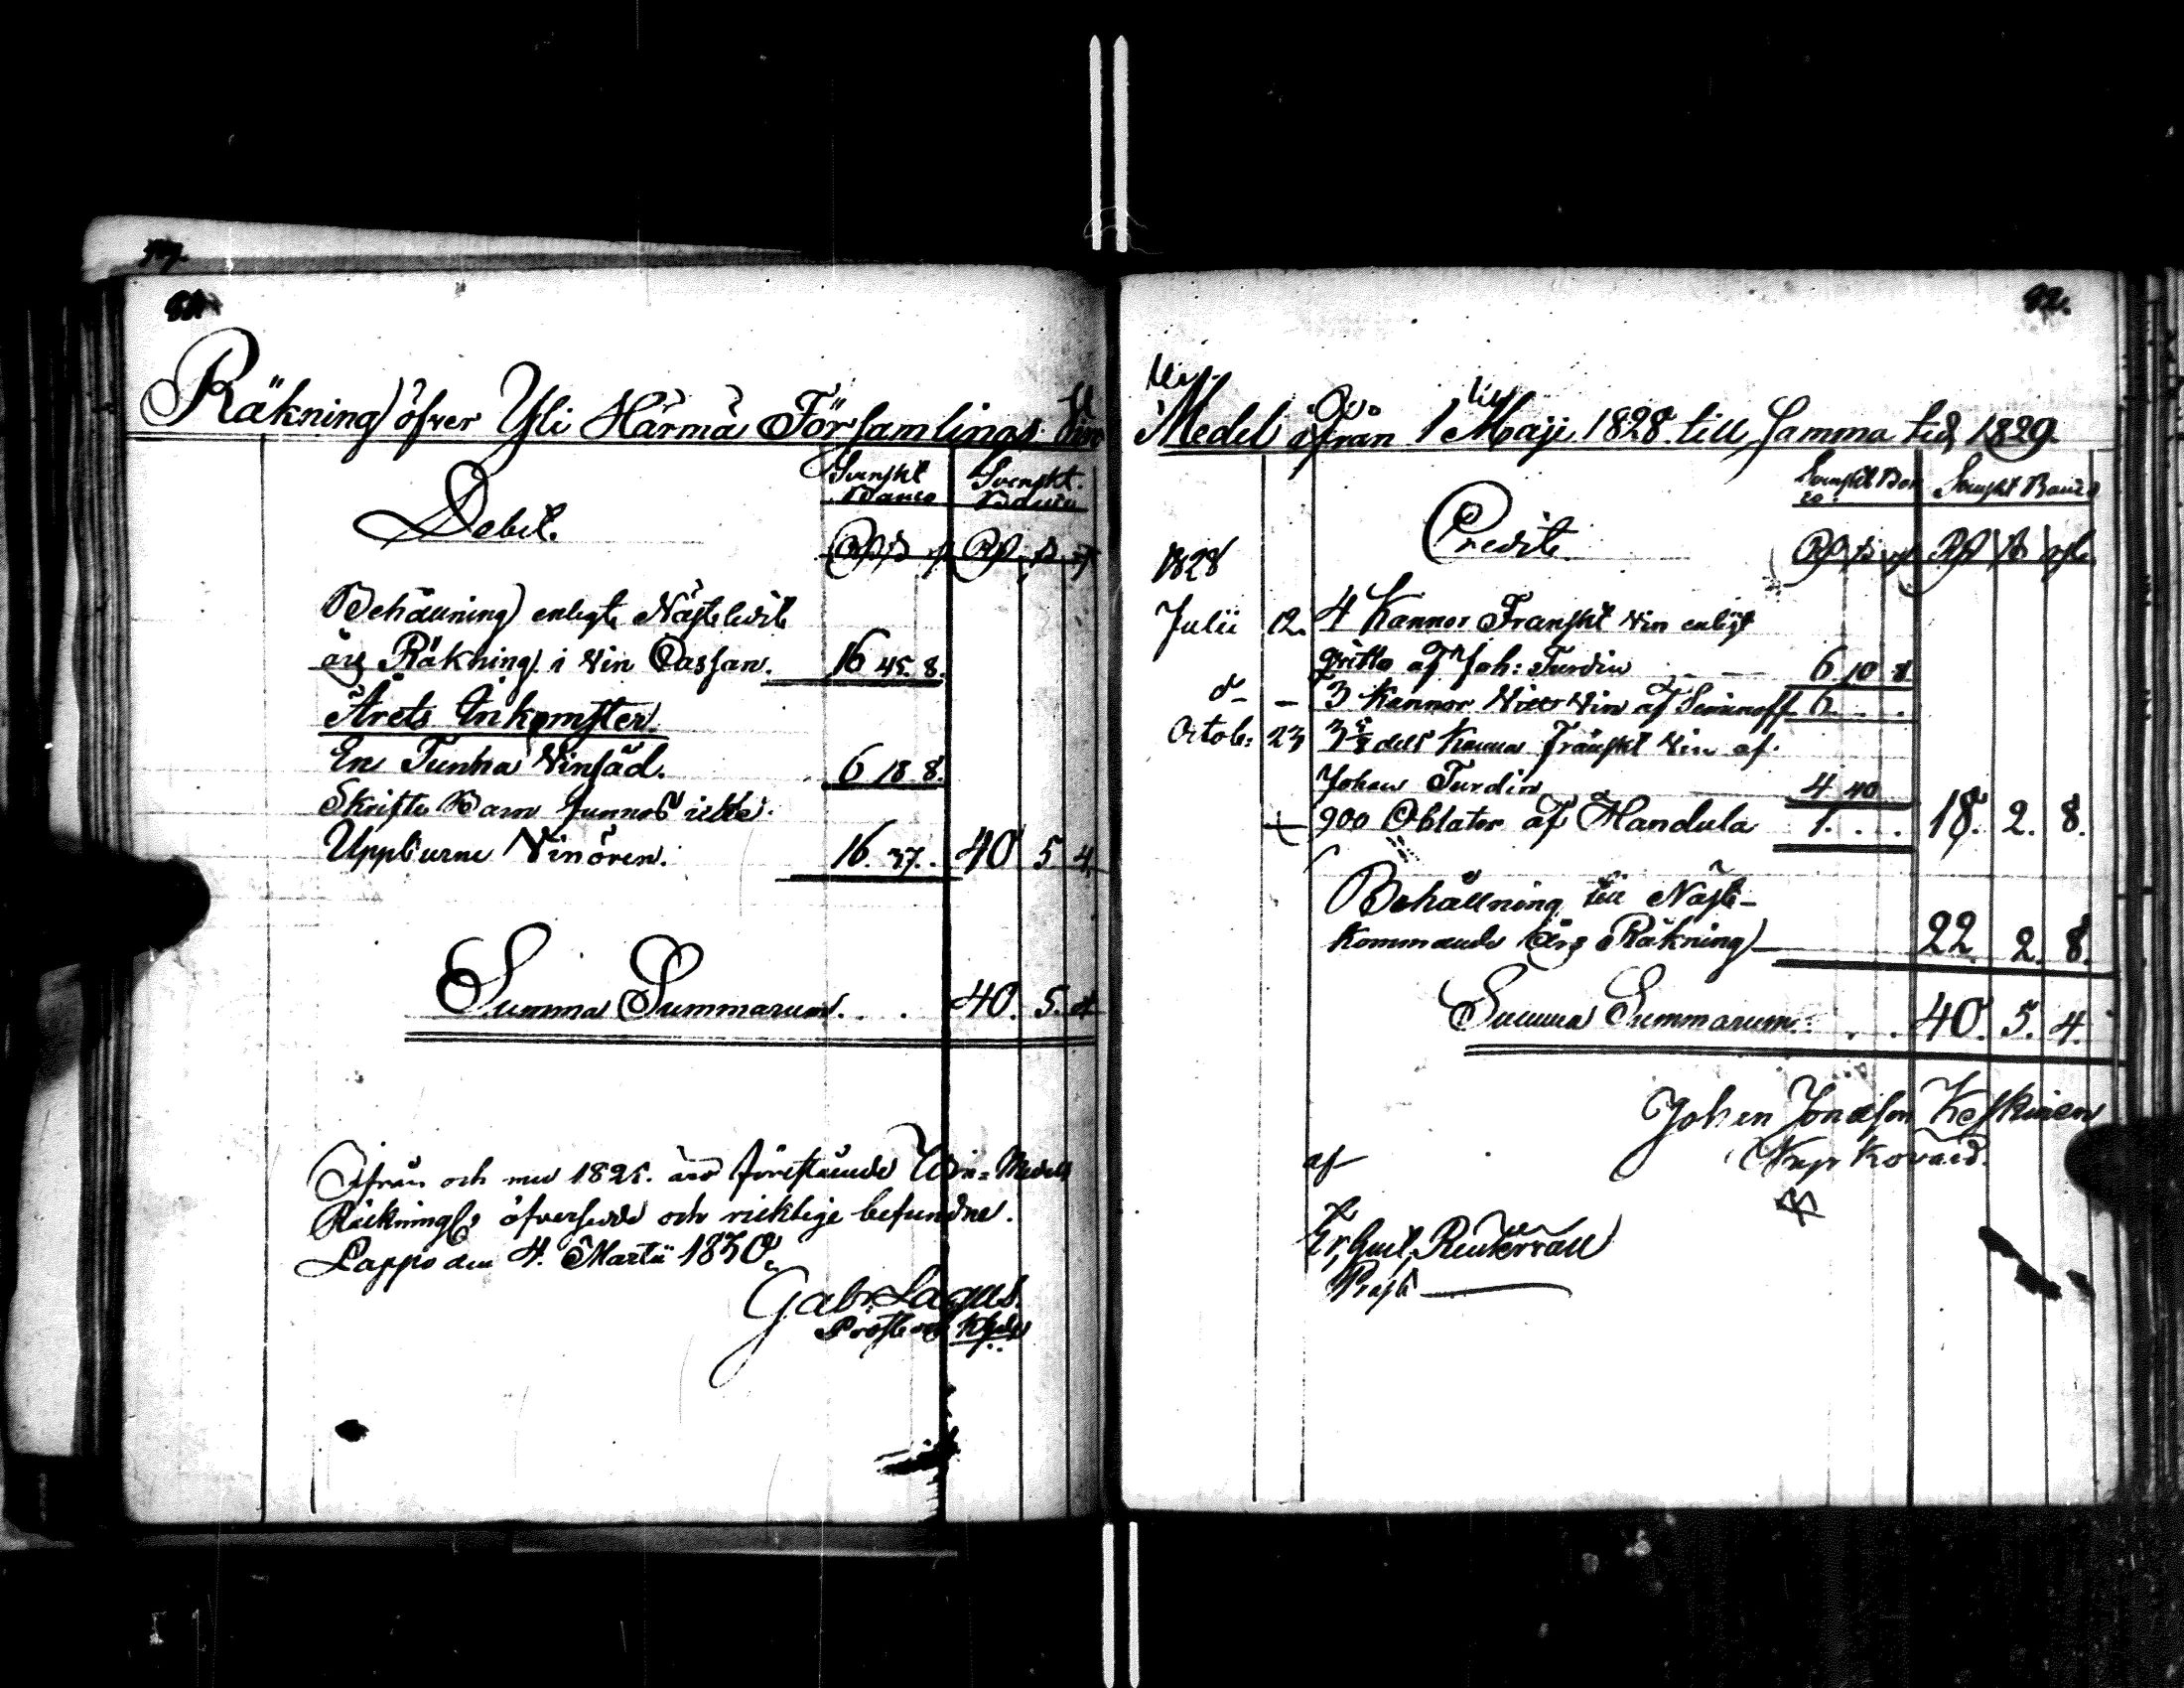 81.
Räkning öfver Yli Härmä Församlings Vin
Debet.
Svenskt Banco
Svenskt Banco
Behållning enligt Nästledit
års Räkning i Vin Cassan. 16 45. 8.
Årets Inkomster.
En Tunna Vinsäd. 6 18 8.
Skrifte Barn funnos icke.
Uppburne Vinören. 16. 37. 40 5 4
Summa Summarum. . . 40. 5. 4
Ifrån och med 1825. äro förestående Win-Medels
Räkningar öfversedde och ricktige befundne.
Lappo den 4. Martii 1830.
Gab. Lagus.
Prost och Khde
82.
Medel ifrån 1 Maji 1828 till samma tid 1829.
Credit
Svenskt Banco
Svenskt Banco
1828
Julii 12. 4 Kannor Franskt Vin enligt
qvitto af Joh: Turdin 6. 10 8
d- - 3 Kannor Vin af Simnoff 6. . .
Octob: 23 3 dels Kanna Franskt Vin af
Johan Turdin 4 40
900 Oblater af Mandula 1. . . . 18. 2. 8.
Behållning till Näst-
kommande års Räkning 22. 2. 8.
Summa Summarum. . . 40. 5. 4.
Johan Jonasson Keskinen
af
Gust. Reutervall